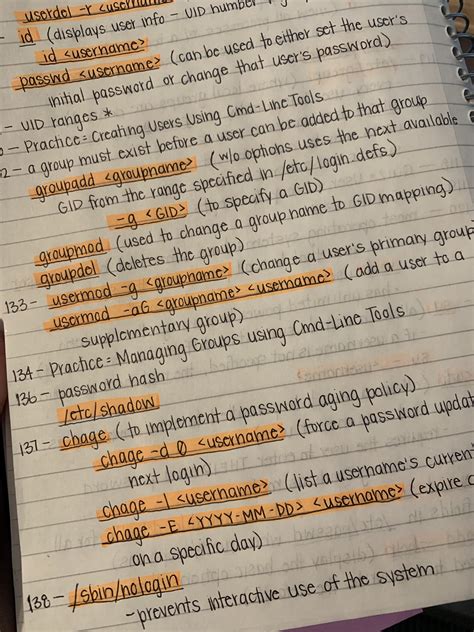 userdel -r <username>
id (displays user info - UID number
id <username>
passwd <username> (can be used to either set the user's
initial password or change that user's password)
- UID ranges *
- Practice: Creating Users Using Cmd-Line Tools
2 - a group must exist before a user can be added to that group
groupadd <groupname> (w/o options uses the next available
GID from the range specified in /etc/login.defs)
-g <GID> (to specify a GID)
groupmod (used to change a group name to GID mapping)
groupdel (deletes the group)
133 - usermod -g <groupname> (change a user's primary group
usermod -aG <groupname> <username> (add a user to a
supplementary group)
134 - Practice: Managing Groups using Cmd-Line Tools
136 - password hash
/etc/shadow
137 - chage (to implement a password aging policy)
chage -d 0 <username> (force a password updat
next login)
chage -l <username> (list a username's current
chage -E <YYYY-MM-DD> <username> (expire
on a specific day)
138 - /sbin/nologin
- prevents interactive use of the system